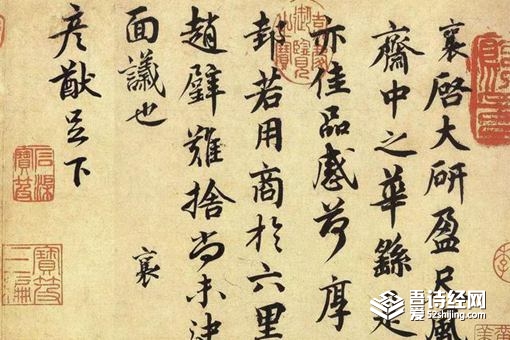 襄啓大研盈尺風
齋中之華緣是
亦佳品感荷厚
邽若用商於六里
趙璧難捨尚未決
面議也
襄
彥猷足下
吾爱诗经网
52shijing.com